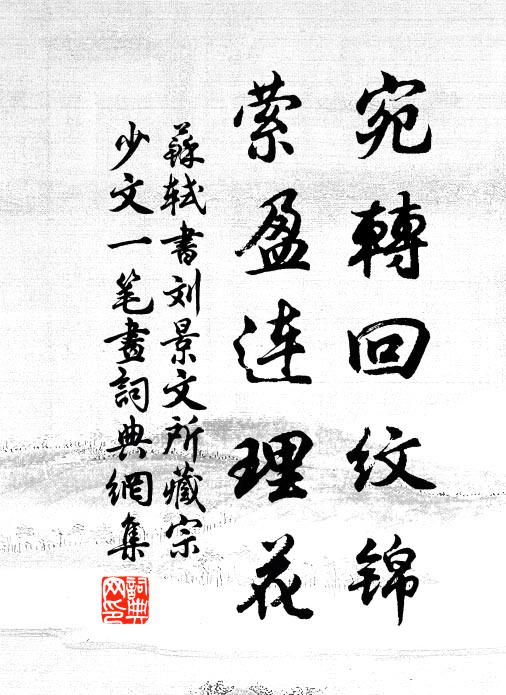 宛轉回紋锦
萦盈连理花
蘇轼書刘景文所藏宗
少文一笔畫詞典網集